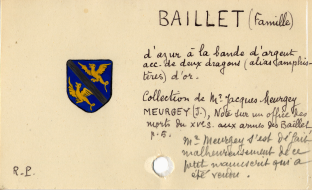 BAILLET (Famille)
d'azur à la bande d'argent,
acc. de deux dragons (alias amphis-
tères) d'or.
Collection de Mr Jacques Meurgey
MEURGEY (J.), Note sur un office des
morts du XVe s. aux armes des Baillet
p. 5.
Mr Meurgey s'est
malheureusement de ce
petit manuscrit qui a
été vendu.
R.P.